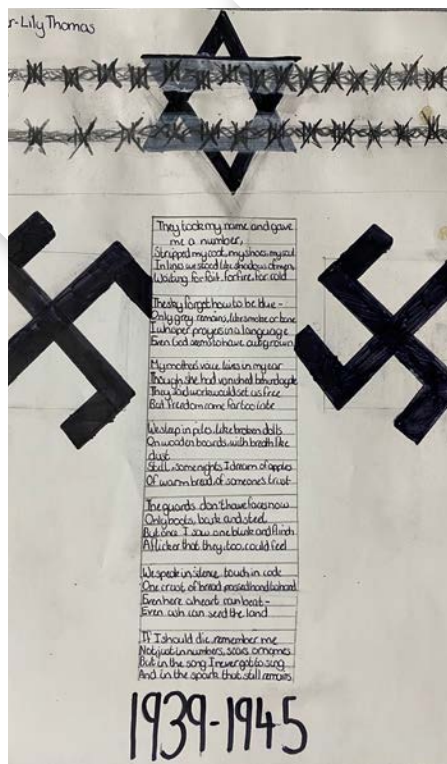 r-Lily Thomas
They took my name and gave
me a number,
Stripped my coat, my shoes, my soul
In lines we stood like shadows of men
Waiting for fait, for fire, for cold
The sky forgot how to be blue -
Only grey remains, like smoke or bone
I whisper prayers in a language
Even God seems to have outgrown
My mother's voice lives in my ear
Though she had vanished behind a gate
They said work would set us free
But freedom came far too late
We sleep in piles, like broken dolls
On wooden boards, with breath like
dust
Still, some nights I dream of apples
Of warm bread, of someone's trust
The guards don't have faces now
Only boots, bark and steel
But once I saw one blink and flinch
A flicker that they, too, could feel
We speak in silence, touch in code
One crust of bread passed hand to hand
Even here a heart can beat -
Even ash can seed the land
If I should die, remember me
Not just in numbers, scars or names
But in the song I never got to sing
And in the spark that still remains
1939-1945